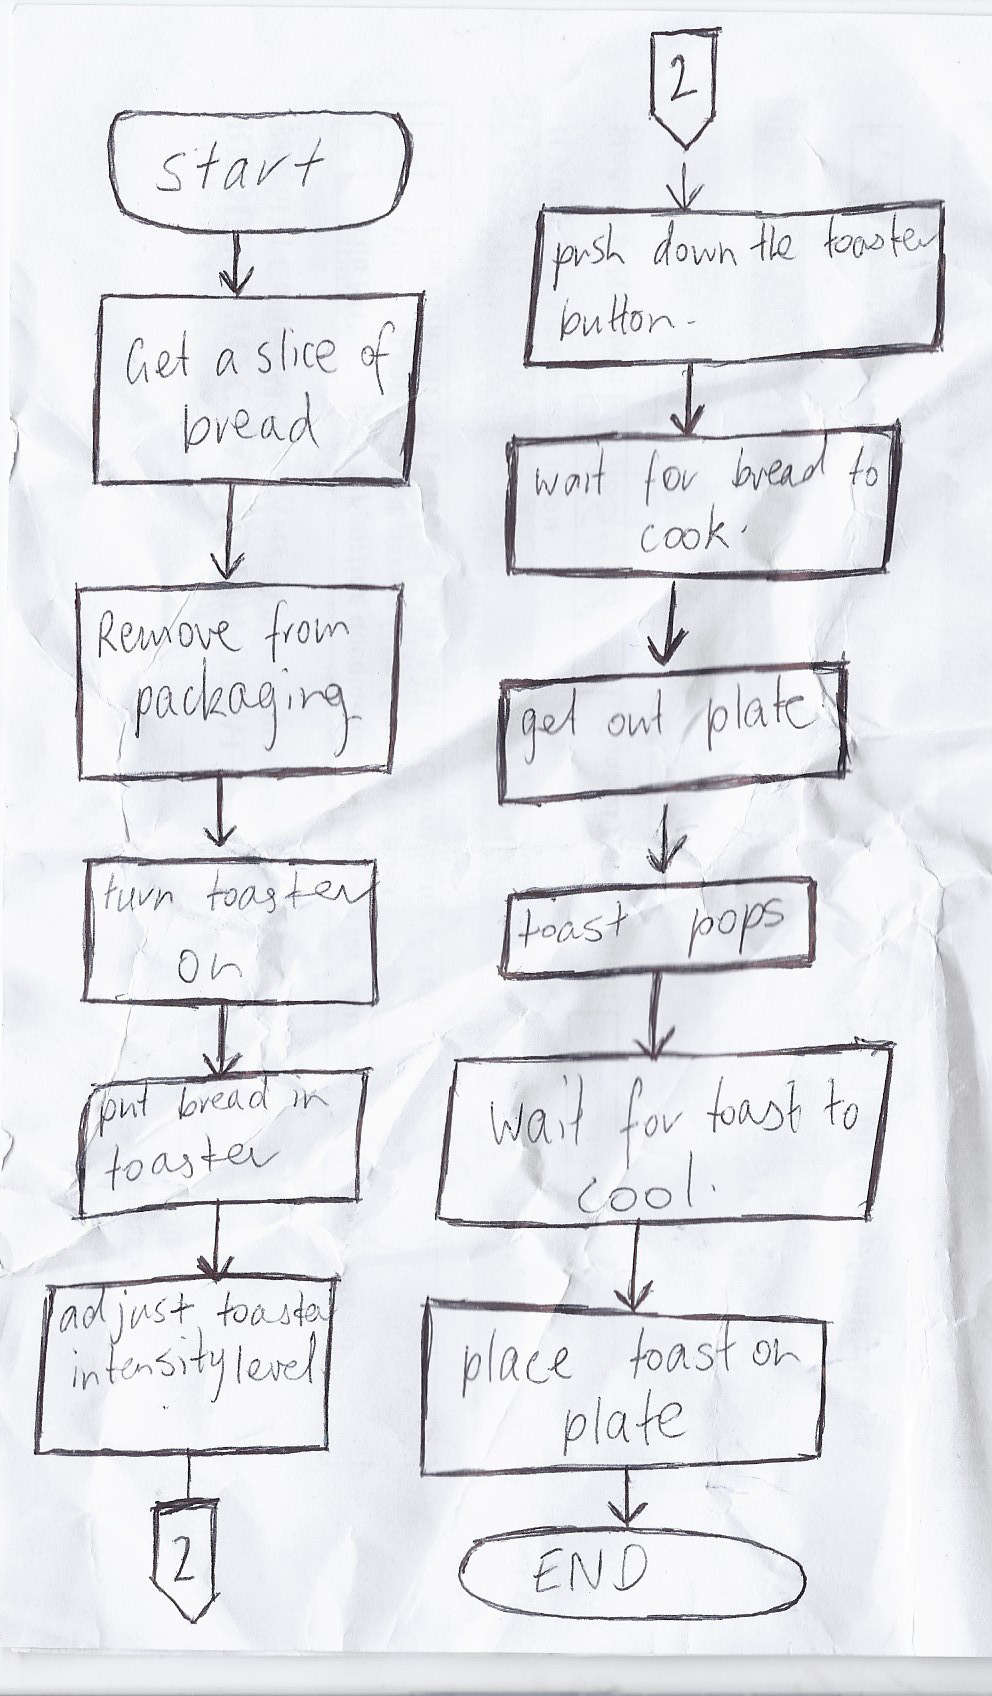 start
Get a slice of
bread
Remove from
packaging
turn toaster
on
put bread in
toaster
adjust toaster
intensity level.
2
2
push down the toaster
button.
wait for bread to
cook.
get out plate
toast pops
wait for toast to
cool.
place toast on
plate
END